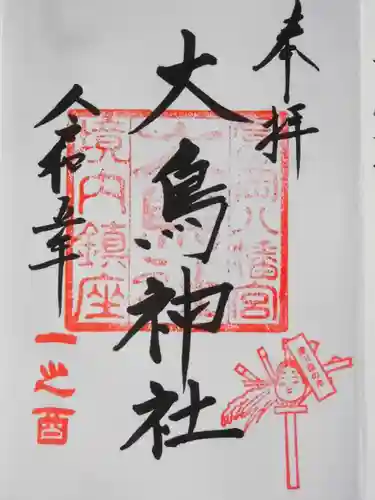 奉拝
大鳥神社
令和五年
一之酉
八幡宮
境内鎮座